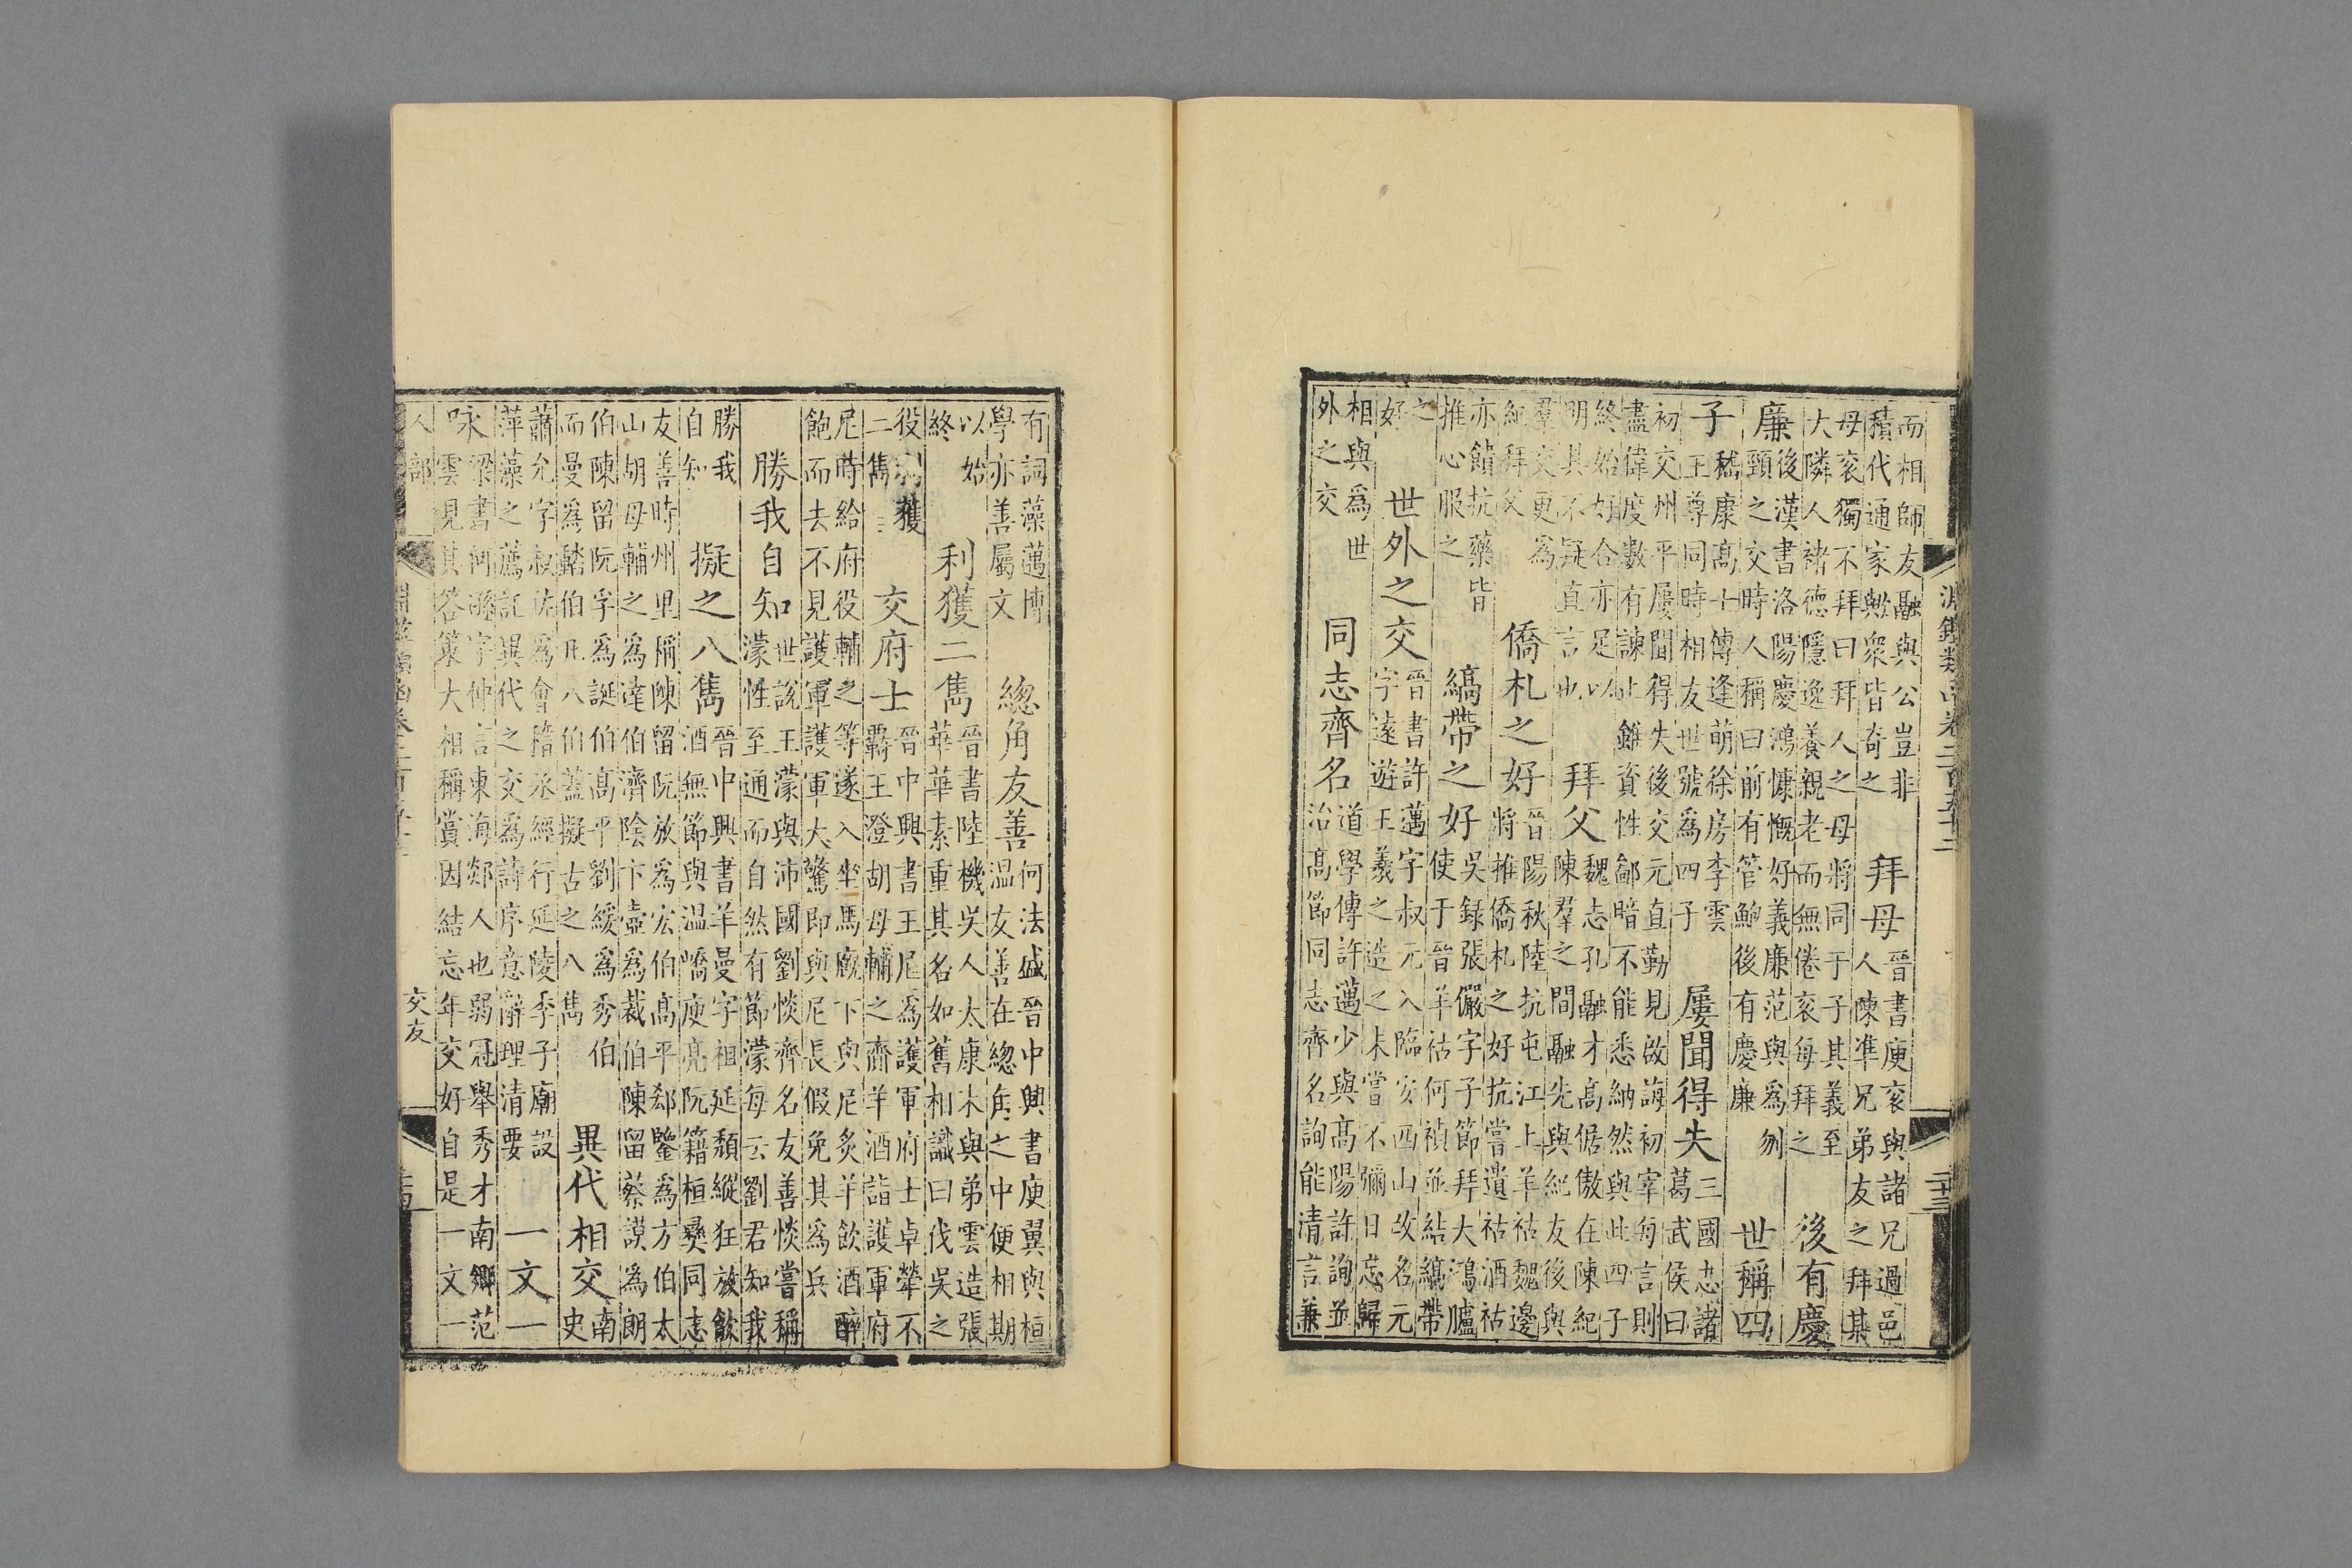 淵鑑類函卷二百五十二
二十三
而相師友融與公豈非
積代通家歟衆皆奇之
拜母
晉書庾袞與諸兄過邑
人陳準兄弟友之拜其
母袞獨不拜曰拜人之母將同于子其義至
大隣人禇德隱逸養親老而無倦袞每拜之
後有慶
廉
後漢書洛陽慶鴻慷慨好義廉范與爲刎
頸之交時人稱曰前有管鮑後有慶廉
世稱四
子
嵇康高士傳逢萌徐房李雲
王尊同時相友世號爲四子
屢聞得失
三國志諸
葛武侯曰
初交州平屢聞得失後交元直勤見啟誨初宰每言則
盡偉度數有諫止雖資性鄙暗不能悉納然與此四子
終始好合亦足以
明其不疑直言也
拜父
魏志孔融才高倨傲在陳紀
陳羣之間融先與紀友後與
羣交更爲
紀拜父
僑札之好
晉陽秋陸抗屯江上羊祜魏邊
將推僑札之好抗嘗遺祜酒祜
亦餽抗藥皆
推心服之
縞帶之好
吳録張儼字子節拜大鴻臚
使于晉羊祜何禎並結縞帶
之
好
世外之交
晉書許邁字叔元入臨安西山故名元
字遠遊王羲之造之未嘗不彌日忘歸
相與爲世
外之交
同志齊名
道學傳許邁少與高陽許詢並
治高節同志齊名詢能清言兼
有詞藻邁博
學亦善屬文
緫角友善
何法盛晉中興書庾翼與桓
温友善在緫角之中便相期
以始
終
利獲二雋
晉書陸機吳人太康末與弟雲造張
華華素重其名如舊相識曰伐吳之
役利獲
二雋
交府士
晉中興書王尼爲護軍府士卓犖不
覊王澄胡母輔之齎羊酒詣護軍府
尼時給府役輔之等遂入坐馬廐下與尼炙羊飲酒醉
飽而去不見護軍護軍大驚即與尼長假免其爲兵
勝我自知
世說王濛與沛國劉惔齊名友善惔嘗稱
濛性至通而自然有節濛每云劉君知我
勝我
自知
擬之八雋
晉中興書羊曼字祖延頹縱狂放飲
酒無節與温嶠庾亮阮籍桓彝同志
友善時州里稱陳留阮放爲宏伯高平郄鑒爲方伯太
山胡母輔之爲達伯濟陰卞壼爲裁伯陳留蔡謨爲朗
伯陳留阮孚爲誕伯高平劉綏爲秀伯
而曼爲䵬伯凡八伯蓋擬古之八雋
異代相交
南
史
蕭允字叔佐爲會稽丞經行延陵季子廟設
萍藻之薦託異代之交爲詩序意辭理清要
一文一
咏
梁書何遜字仲言東海郯人也弱冠舉秀才南鄉范
雲見其答策大相稱賞因結忘年交好自是一文一
人部
淵鑑類函卷二百五十二
交友
二十四